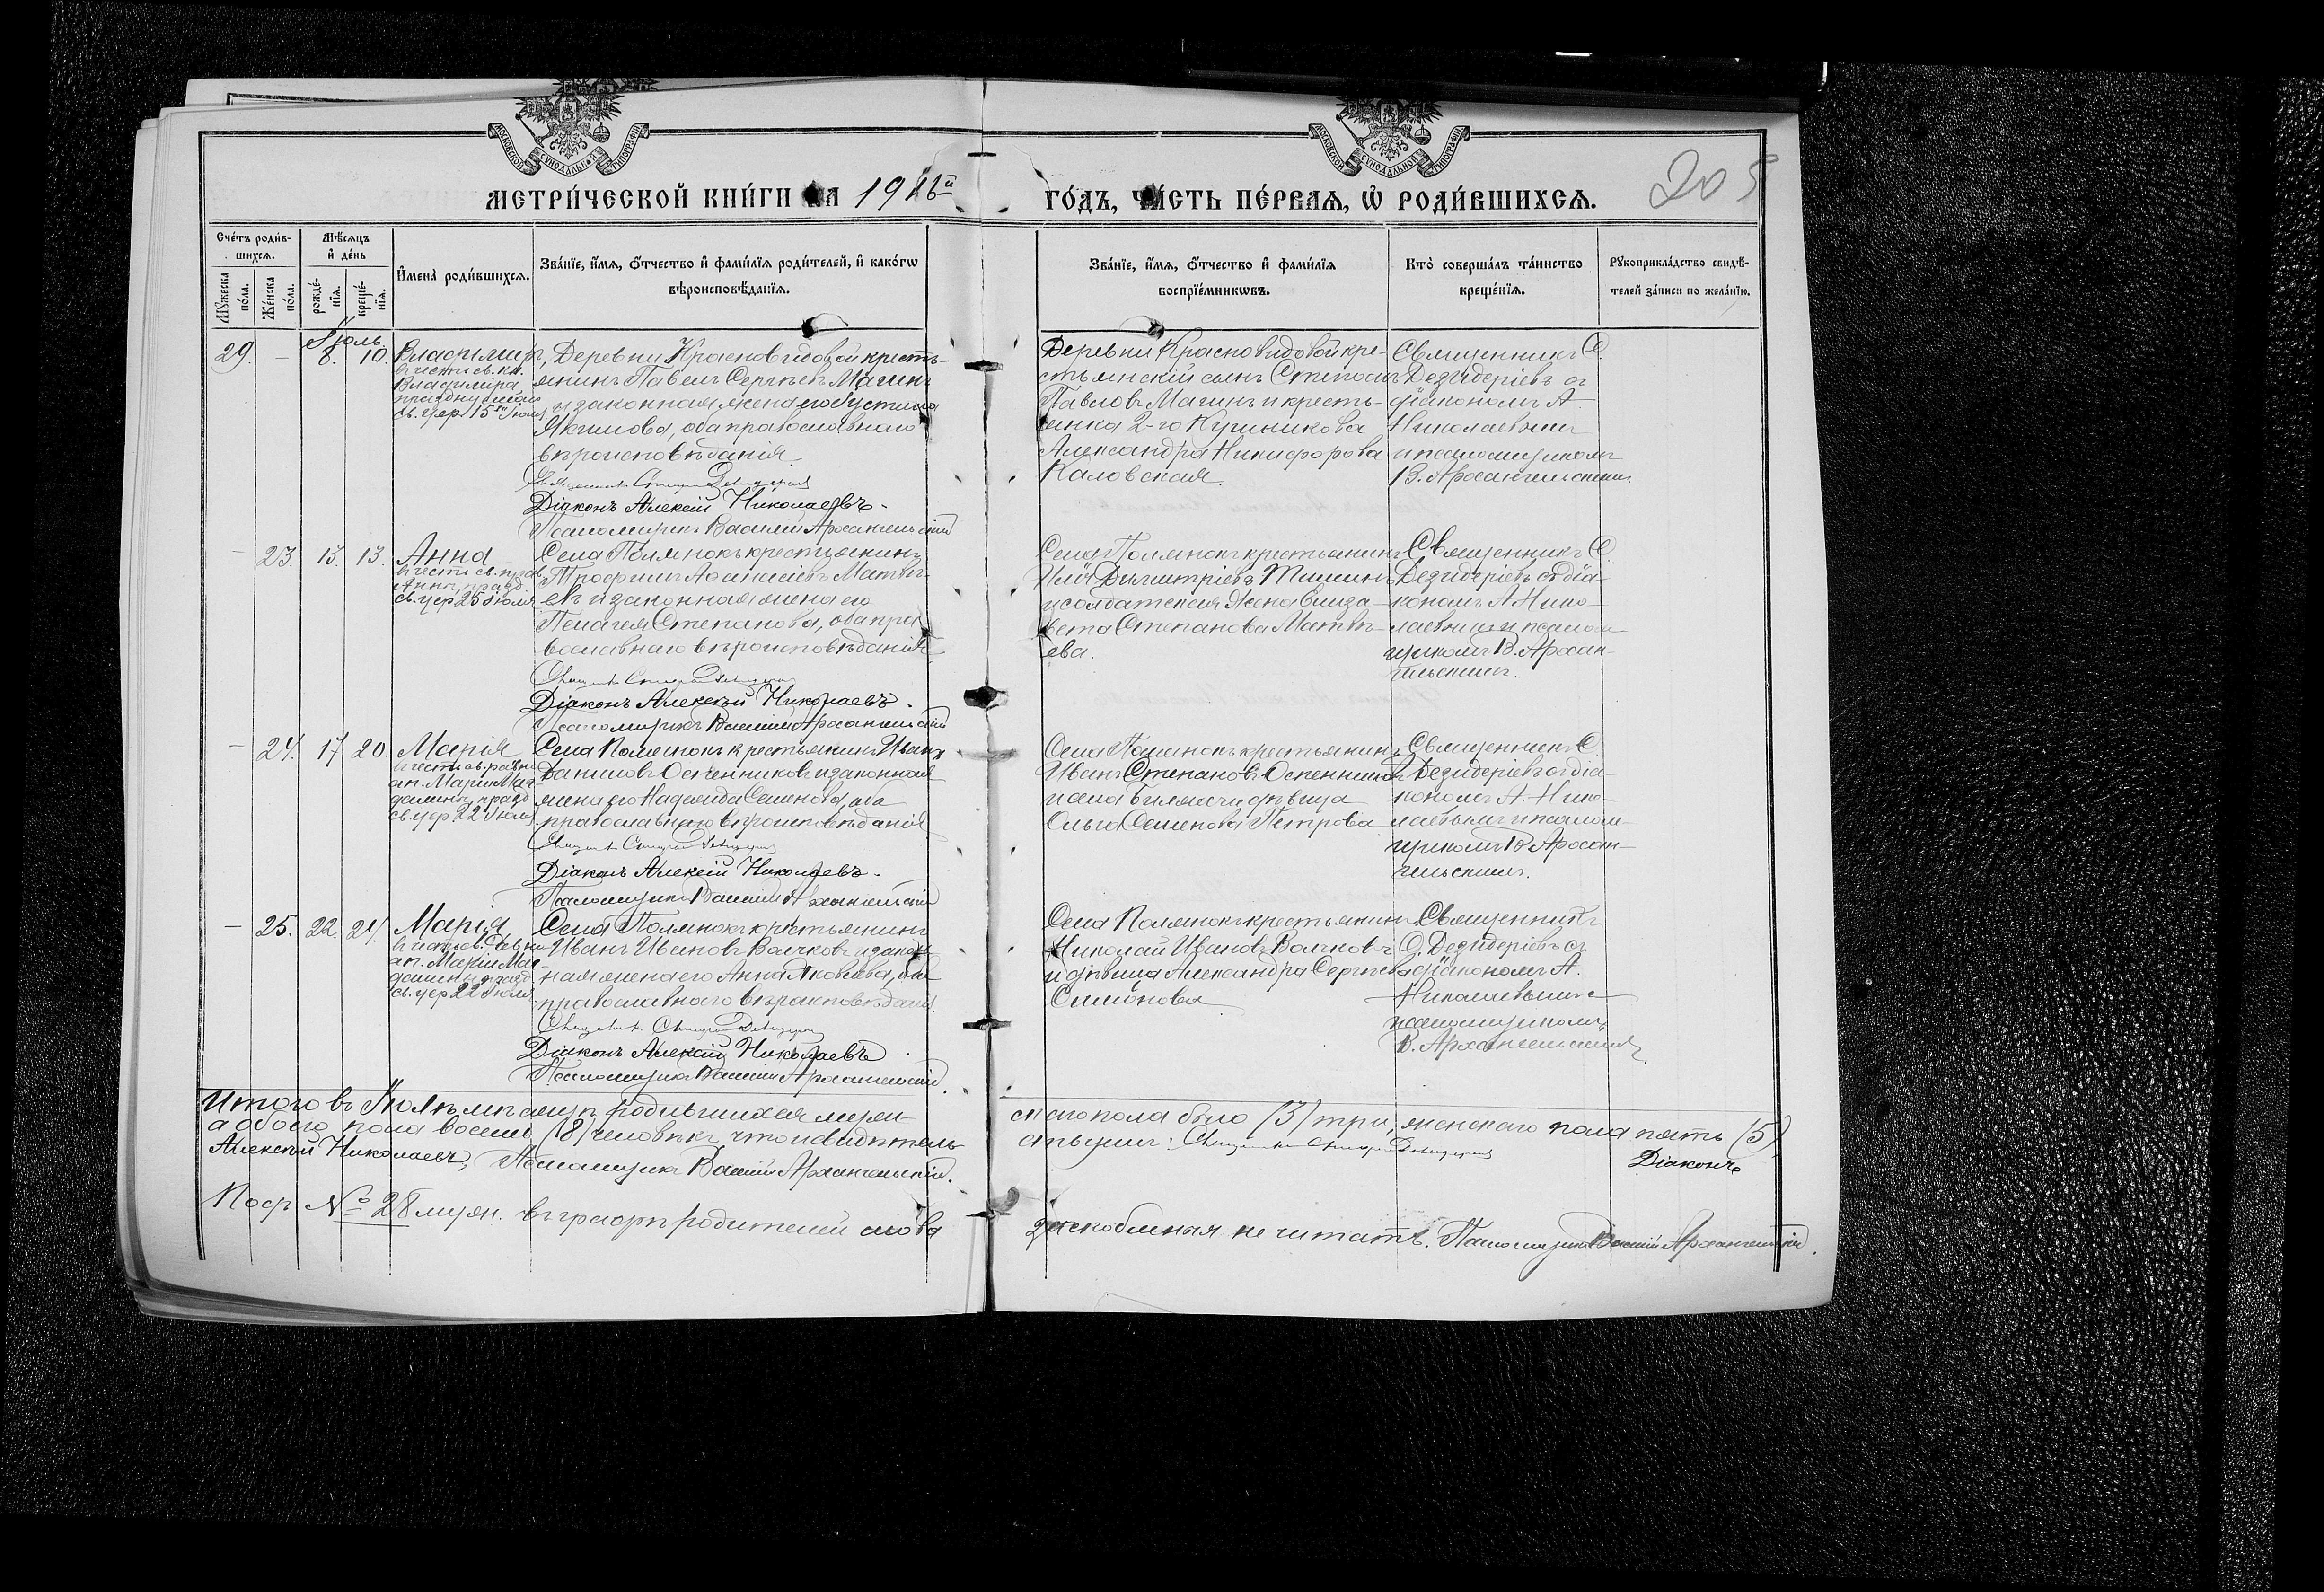 МОСКОВСКОЙ СѴНОДАЛЬНОЙ ТИПОГРАФІИ
МОСКОВСКОЙ СѴНОДАЛЬНОЙ ТИПОГРАФІИ
МЕТРИ́ЧЕСКОЙ КНИ́ГИ НА 19
ГО́ДЪ, ЧА́СТЬ ПЕ́РВАѦ, Ѡ҆ РОДИ́ВШИХСѦ.
205
Сче́тъ роди́в-
шихсѧ.
Мꙋ́жеска
по́ла.
Же́нска
по́ла.
Мѣ́сѧцъ
и҆ де́нь
рожде́-
нїѧ.
креще́-
нїѧ.
И҆мена̀ роди́вшихсѧ.
Зва́нїе, и҆́мѧ, ѻ҆́тчество и҆ фами́лїѧ роди́телей, и҆ како́гѡ
вѣроисповѣ́данїѧ.
Зва́нїе, и҆́мѧ, ѻ҆́тчество и҆ фами́лїѧ
воспрїе́мникѡвъ.
Кто̀ соверша́лъ та́инство
креще́нїѧ.
Рꙋкоприкла́дство свидѣ́-
телей за́писи по жела́нїю.
Іюль.
29. – 8. 10.
Владимиръ,
въ честь св. кн.
Владимира,
празднуемаго
св. цер. 15го Іюля
Деревни Красновидовой кресть-
янинъ Павелъ Сергѣевъ Магинъ
и законная жена его Устина
Якимова, оба православнаго
вѣроисповѣданія
Священникъ Дезидеріевъ
Діаконъ Алексій Николаевъ.
Псаломщикъ Василій Архангельскій
Деревни Красновидовой кре-
стьянскій сынъ Степанъ
Павловъ Магинъ и кресть-
янка 2-го
Александра Никифорова
Каловская.
Священникъ С.
Дезидеріевъ съ
діакономъ А.
Николаевымъ
и псаломщикомъ
В. Архангельскимъ.
– 23. 13. 13.
Анна
въ честь св. прав.
Анны, празд.
св. цер. 25 Іюля
Села Полянокъ крестьянинъ
Трофимъ Матвѣ-
евъ и законная жена его
Пелагея Степанова, оба пра
вославнаго вѣроисповѣданія
Священникъ Дезидеріевъ
Діаконъ Алексѣй Николаевъ.
Псаломщикъ Василій Архангельскій
Села Полянокъ крестьянинъ
Илія Димитріевъ Тишинъ
и солдатская жена Елиза-
вета Степанова Матвѣ-
ева.
Священникъ С.
Дезидеріевъ съ діа-
кономъ А. Нико-
лаевымъ и псалом-
щикомъ В. Архан-
гельскимъ.
– 24. 17 20.
Марія
въ честь св. равно
ап. Маріи Маг-
далины, празд
св. цер. 22 Іюля
Села Полянокъ крестьянинъ Иванъ
Даниловъ Оспенниковъ и законная
жена его Надежда Семенова, оба
православнаго вѣроисповѣданія
Священникъ Дезидеріевъ
Діаконъ Алексій Николаевъ.
Псаломщикъ Василій Архангельскій
Села Полянокъ крестьянинъ
Иванъ Степановъ Оспенниковъ
и села дѣвица
Ольга Семенова Петрова
Священникъ С.
Дезидеріевъ съ діа-
кономъ А. Нико-
лаевымъ и псалом-
щикомъ В. Архан-
гельскимъ.
– 25. 22. 24.
Марія,
въ честь св. равно
ап. Маріи Маг-
далины, празд
св. цер 22 Іюля
Села Полянокъ крестьянинъ
Иванъ Ивановъ Волчковъ и закон-
ная жена его Анна Яковлева, оба
православнаго вѣроисповѣданія.
Священникъ Дезидеріевъ
Діаконъ Алексій Николаевъ
Псаломщикъ Василій Архангельскій.
Села Полянокъ крестьянинъ
Николай Ивановъ Волчковъ
и дѣвица Александра Сергѣева
Симонова
Священникъ
С. Дезидеріевъ съ
діакономъ А.
Николаевымъ и
псаломщикомъ
В. Архангельскимъ.
Итого въ Іюлѣ мѣсяцѣ родившихся муж-
скаго пола было (3) три, женскаго пола пять (5),
а обоего пола восемь (8) человѣкъ, что и свидѣтель-
ствуемъ: Священникъ Дезидеріевъ
Діаконъ
Алексѣй Николаевъ, Псаломщикъ Василій Архангельскій.
Подъ № 28 муж. въ графѣ родителей слова
заскобленныя не читать. Псаломщикъ Василій Архангельскій.